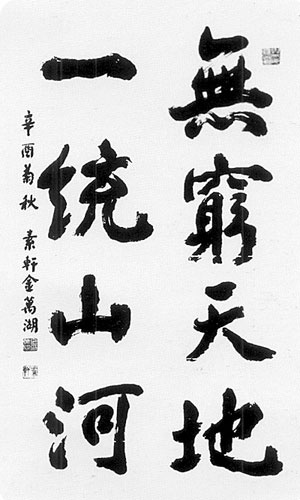 無窮天地
一統山河
辛酉菊秋 素軒金萬湖